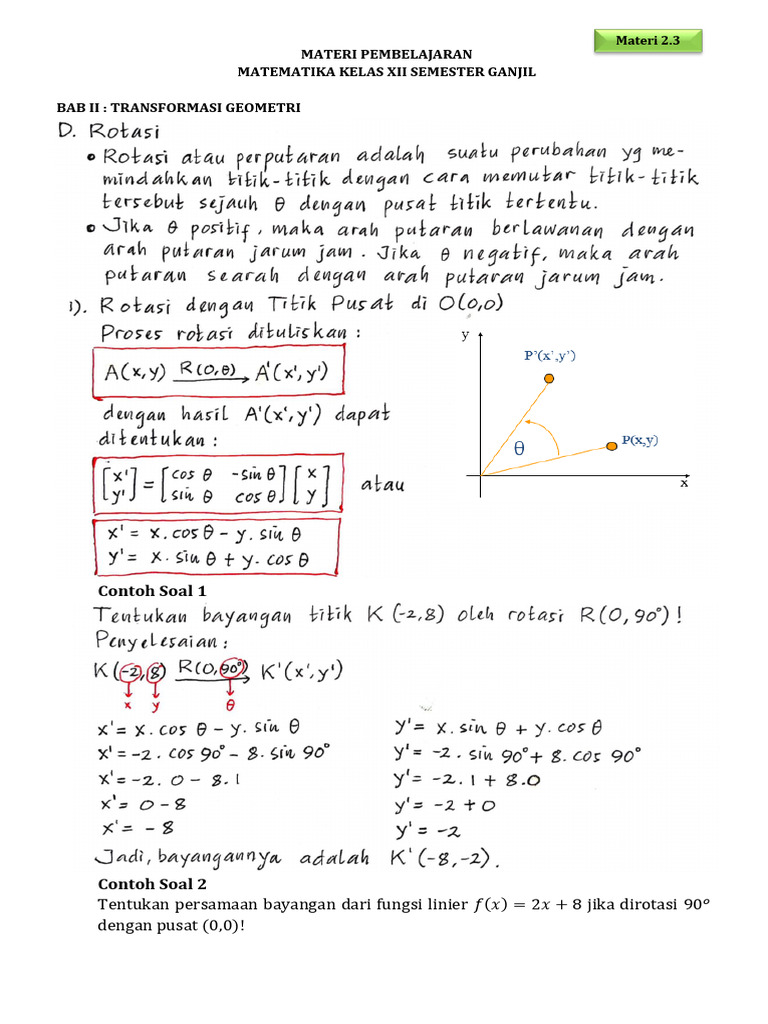 Materi 2.3
MATERI PEMBELAJARAN
MATEMATIKA KELAS XII SEMESTER GANJIL
BAB II : TRANSFORMASI GEOMETRI
D. Rotasi
• Rotasi atau perputaran adalah suatu perubahan yg me-
mindahkan titik-titik dengan cara memutar titik-titik
tersebut sejauh θ dengan pusat titik tertentu.
• Jika θ positif, maka arah putaran berlawanan dengan
arah putaran jarum jam. Jika θ negatif, maka arah
putaran searah dengan arah putaran jarum jam.
1). Rotasi dengan Titik Pusat di O(0,0)
Proses rotasi dituliskan :
A(x,y) R(0,θ) → A'(x',y')
dengan hasil A'(x',y') dapat
ditentukan :
[x' y'] = [cos θ -sin θ sin θ cos θ] [x y] atau
x' = x.cos θ – y. sin θ
y' = x. sin θ + y. cos θ
y
P’(x’,y’)
θ
P(x,y)
x
Contoh Soal 1
Tentukan bayangan titik K (-2,8) oleh rotasi R(0, 90°) !
Penyelesaian :
K (-2, 8) R(0, 90°) → K'(x',y')
↓ x ↓ y ↓ θ
x' = x. cos θ – y. sin θ
x' = -2. cos 90° – 8. sin 90°
x' = -2. 0 – 8. 1
x' = 0 – 8
x' = – 8
y' = x. sin θ + y. cos θ
y' = -2 . sin 90° + 8. cos 90°
y' = -2. 1 + 8.0
y' = -2 + 0
y' = -2
Jadi, bayangannya adalah K'(-8,-2).
Contoh Soal 2
Tentukan persamaan bayangan dari fungsi linier f(x) = 2x + 8 jika dirotasi 90°
dengan pusat (0,0)!